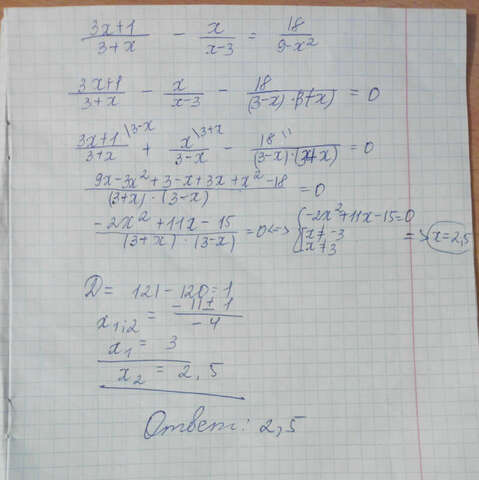 (3x+1)/(3+x) - x/(x-3) = 18/(9-x²)
(3x+1)/(3+x) - x/(x-3) - 18/((3-x)·(3+x)) = 0
(3x+1)/(3+x) \3-x + x/(3-x) \3+x - 18/((3-x)·(3+x)) \1 = 0
(9x-3x²+3-x+3x+x²-18)/((3+x)·(3-x)) = 0
(-2x²+11x-15)/((3+x)·(3-x)) = 0 <=> { -2x²+11x-15=0
x≠-3
x≠3 => x=2,5
D = 121-120=1
x1;2 = (-11±1)/(-4)
x1 = 3
x2 = 2,5
Ответ: 2,5